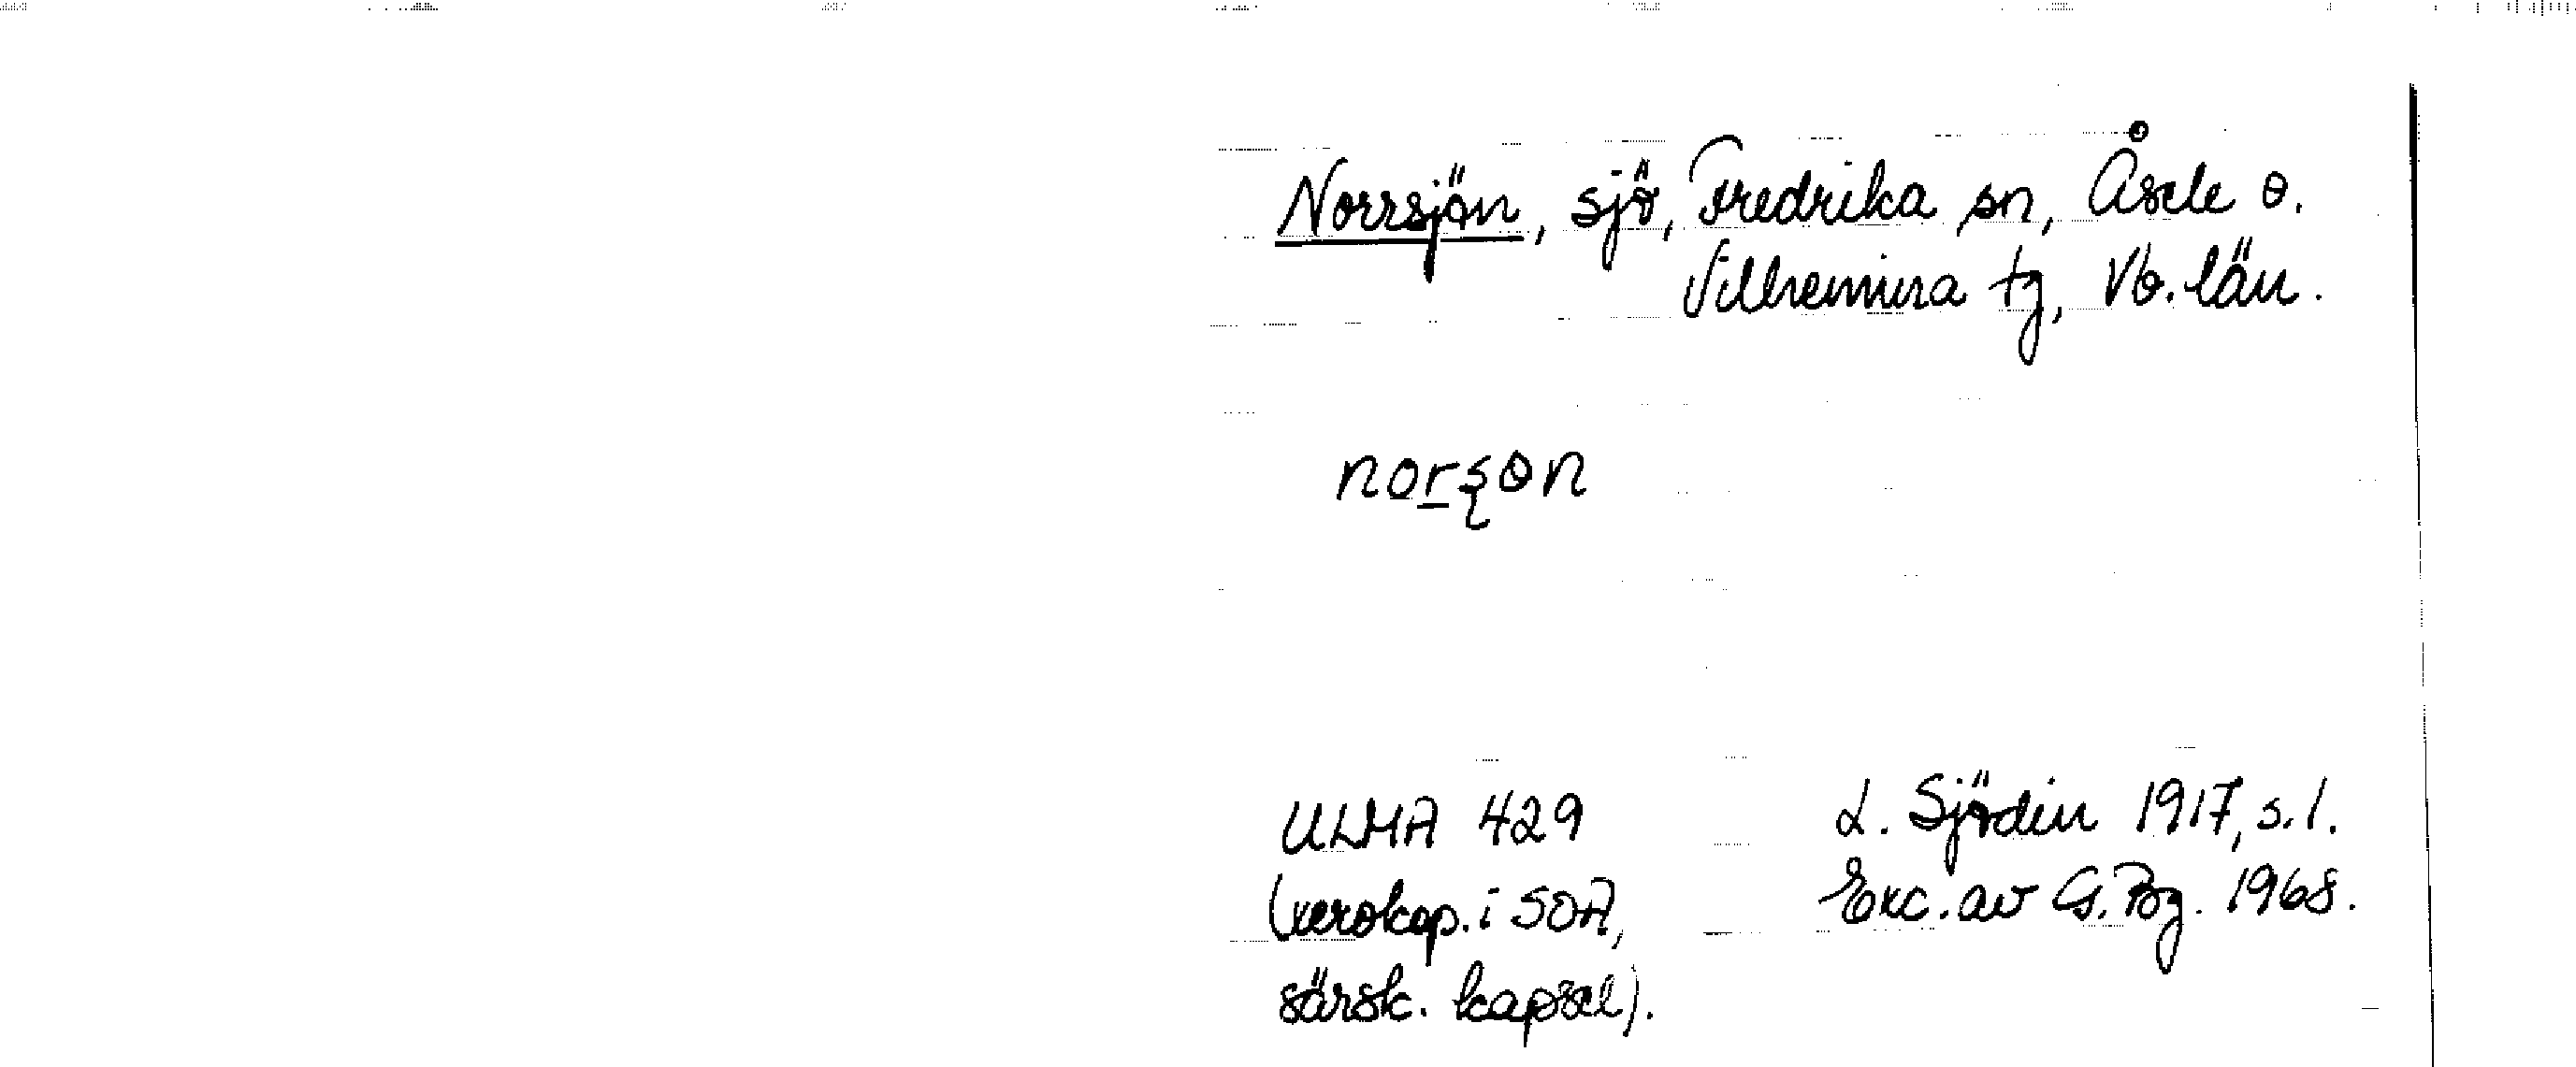 Norrsjön, sjö, Fredrika sn, Åsele o.
Vilhemina tg, Vb. län.
ULMA 429
L. Sjödin 1917, s. 1.
(xerokop. i SOA,
Exc. av G. Bg. 1968.
särsk. kapsel).